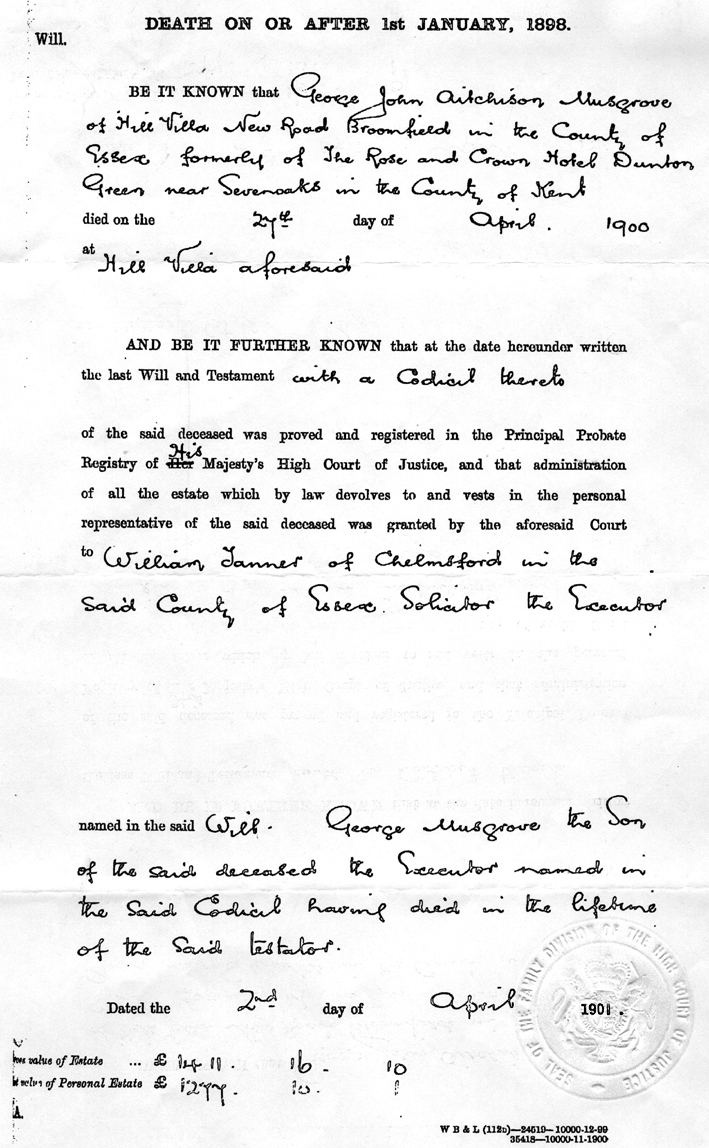 DEATH ON OR AFTER 1st JANUARY, 1898.
Will.
BE IT KNOWN that George John Aitchison Musgrove
of Hill Villa New Road Broomfield in the County of
Essex formerly of The Rose and Crown Hotel Dunton
Green near Sevenoaks in the County of Kent
died on the 27th day of April. 1900
at Hill Villa aforesaid
AND BE IT FURTHER KNOWN that at the date hereunder written
the last Will and Testament with a Codicil thereto
of the said deceased was proved and registered in the Principal Probate
His
Registry of Her Majesty's High Court of Justice, and that administration
of all the estate which by law devolves to and vests in the personal
representative of the said deceased was granted by the aforesaid Court
to William Tanner of Chelmsford in the
said County of Essex. Solicitor the Executor
named in the said Will. George Musgrove the Son
of the said deceased the Executor named in
the said Codicil having died in the lifetime
of the said testator.
Dated the 2nd day of April 1901.
SEAL OF THE FAMILY DIVISION OF THE HIGH COURT OF JUSTICE
value of Estate ... £ 16. 10
of Personal Estate £ 1277. 10.
A.
W B & L (112D)—24519—10000-12-99
35418—10000-11-1900